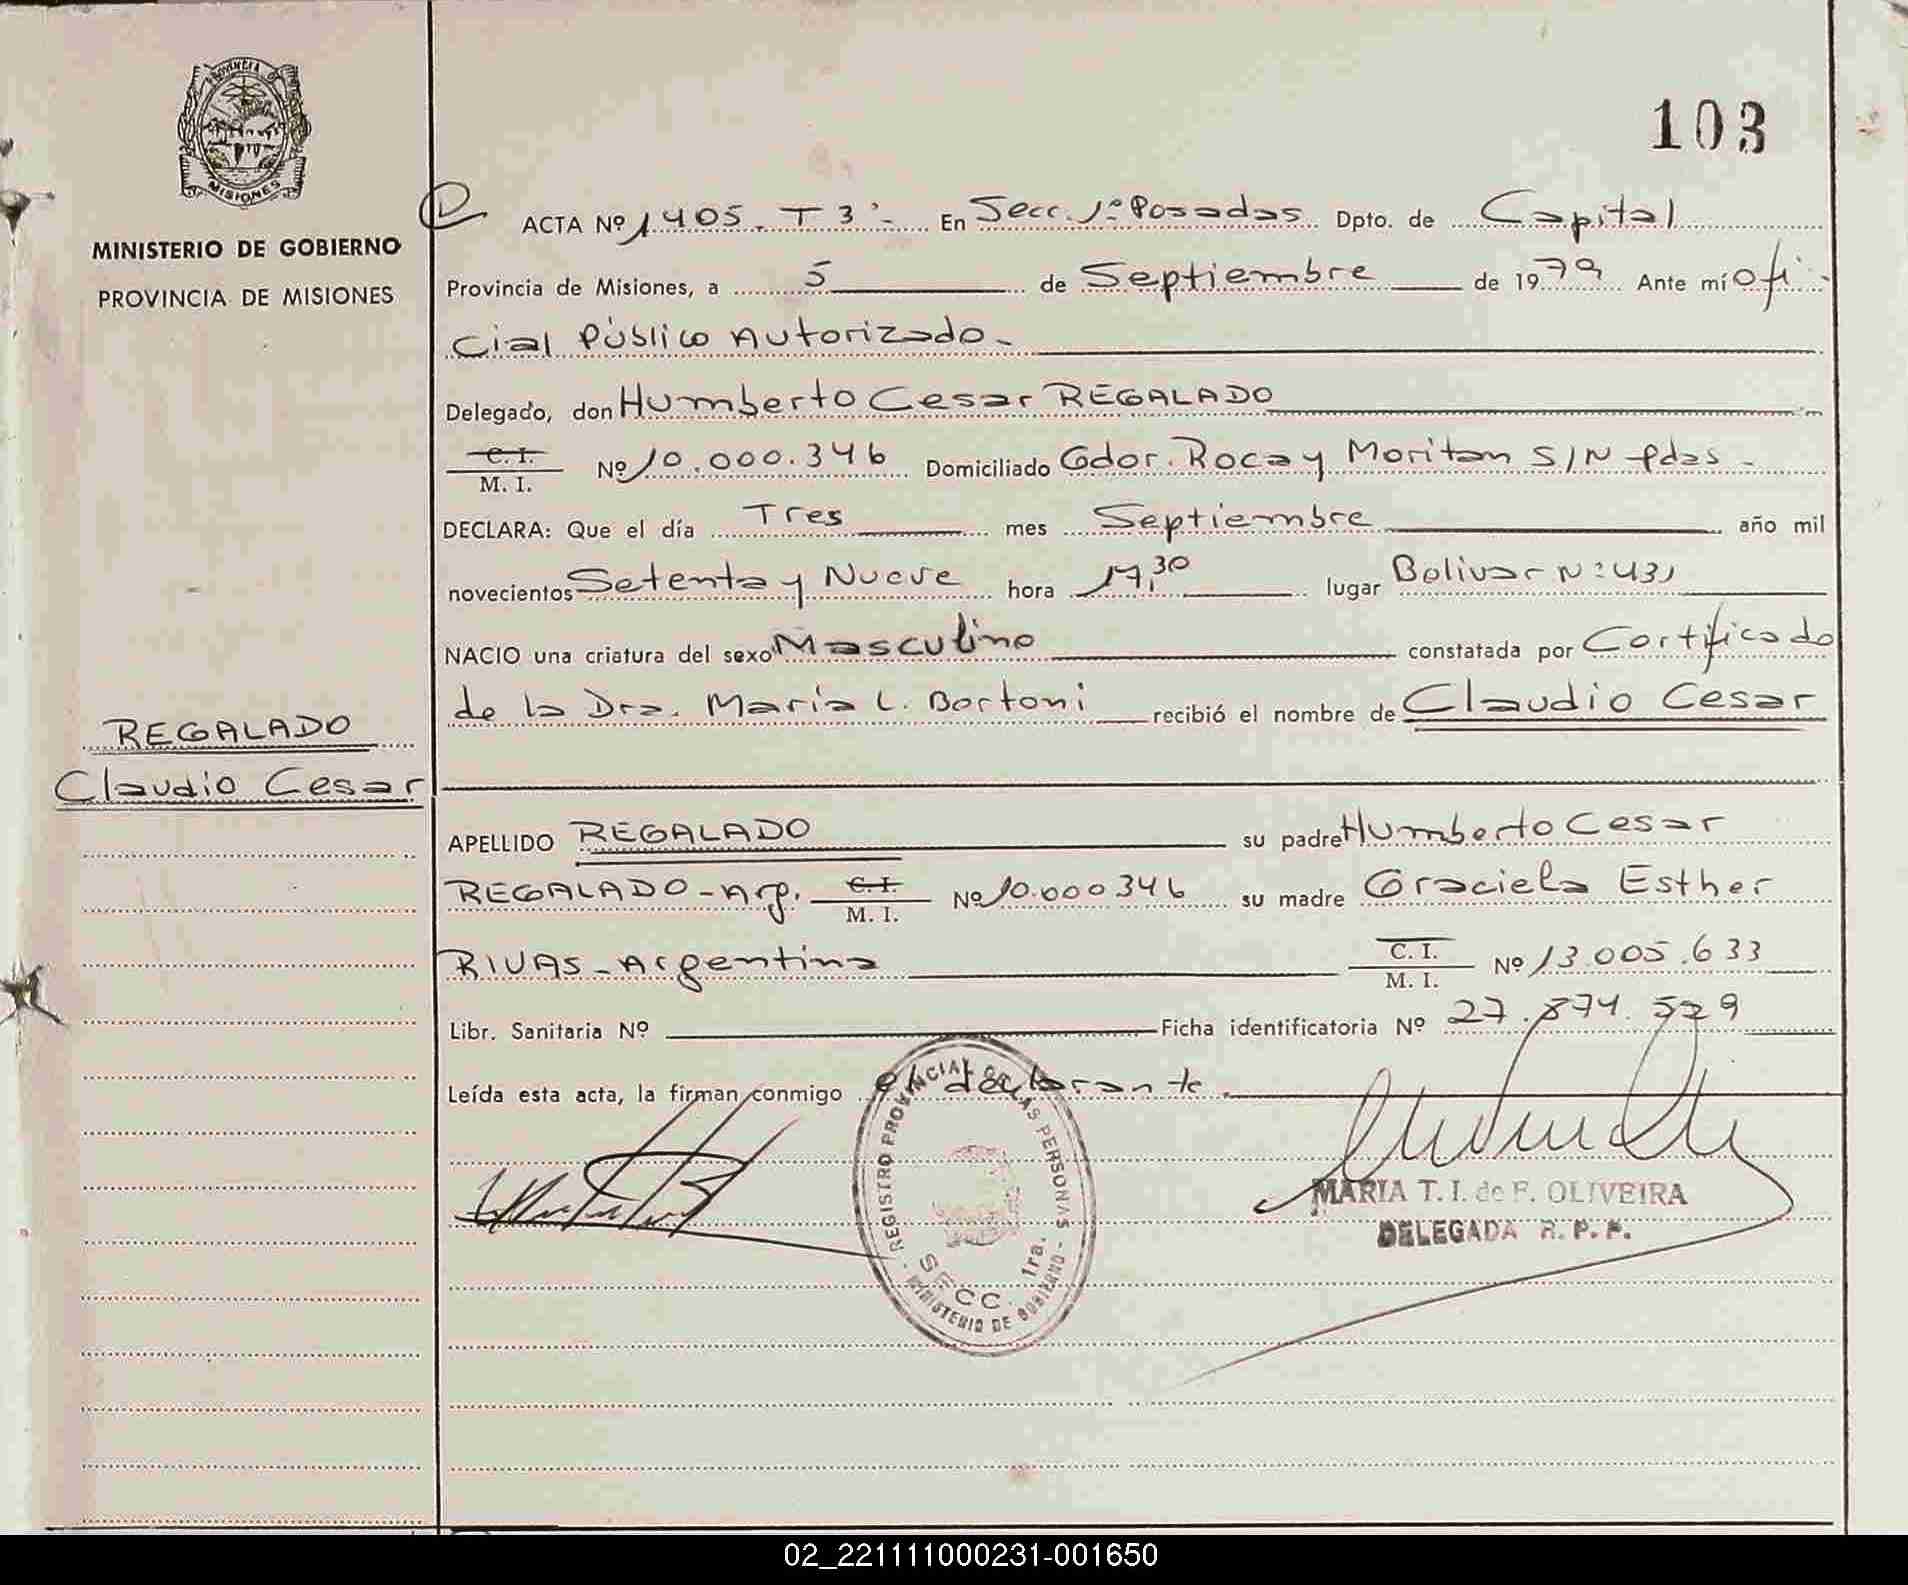 PROVINCIA D
MISIONES
MINISTERIO DE GOBIERNO
PROVINCIA DE MISIONES
REGALADO
Claudio Cesar
103
ACTA Nº 1405. T 3º- En Secc. 1º Posadas Dpto. de Capital
Provincia de Misiones, a 5 de Septiembre de 1979 Ante mí Ofi-
cial Público Autorizado-
Delegado, don Humberto Cesar REGALADO
C. I.
M. I. Nº 10.000.346 Domiciliado Gdor. Roca y Moritan S/N Pdas-
DECLARA: Que el día Tres mes Septiembre año mil
novecientos Setenta y Nueve hora 17,30 lugar Bolivar Nº 431
NACIO una criatura del sexo Masculino constatada por Certificado
de la Dra. Maria L. Bortoni recibió el nombre de Claudio Cesar
APELLIDO REGALADO su padre Humberto Cesar
REGALADO-Arg. C. I. M. I. Nº 10.000346 su madre Graciela Esther
RIVAS-Argentina C. I. M. I. Nº 13.005.633
Libr. Sanitaria Nº Ficha identificatoria Nº 27.874.529
Leída esta acta, la firman conmigo el declarante
REGISTRO PROVINCIAL DE LAS PERSONAS - MINISTERIO DE GOBIERNO -
SECC. 1ra.
MARIA T. I. de F. OLIVEIRA
DELEGADA R. P. P.
02_221111000231-001650